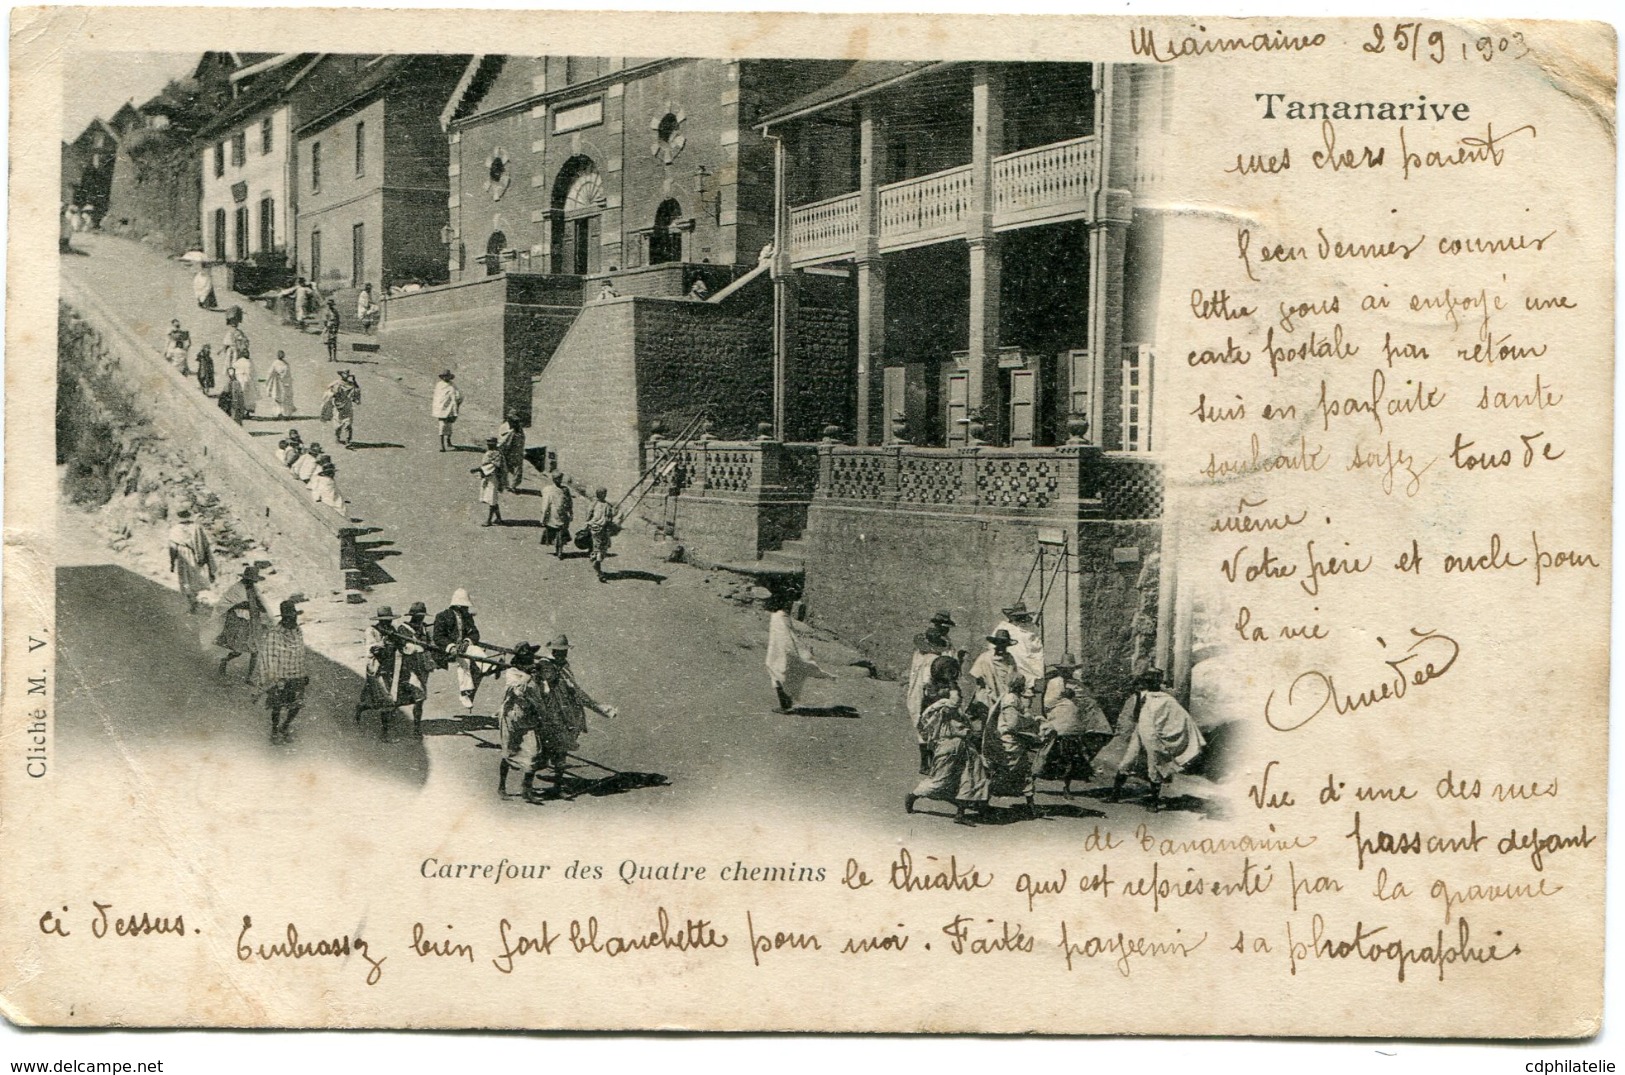 25/9 1903
Tananarive
mes chers parent
Recu dernier courrier
lettre vous ai envoyé une
carte postale par retour
suis en parfaite sante
souhaite soyez tous de
même.
Votre frere et oncle pour
la vie
Amédée
Vue d'une des rues
de Tananarive passant devant
Carrefour des Quatre chemins
le théatre qui est représenté par la gravure
ci dessus. Embrassez bien fort blanchette pour moi. Faites parvenir sa photographie.
Cliché M. V.
www.delcampe.net
cdphilatelie